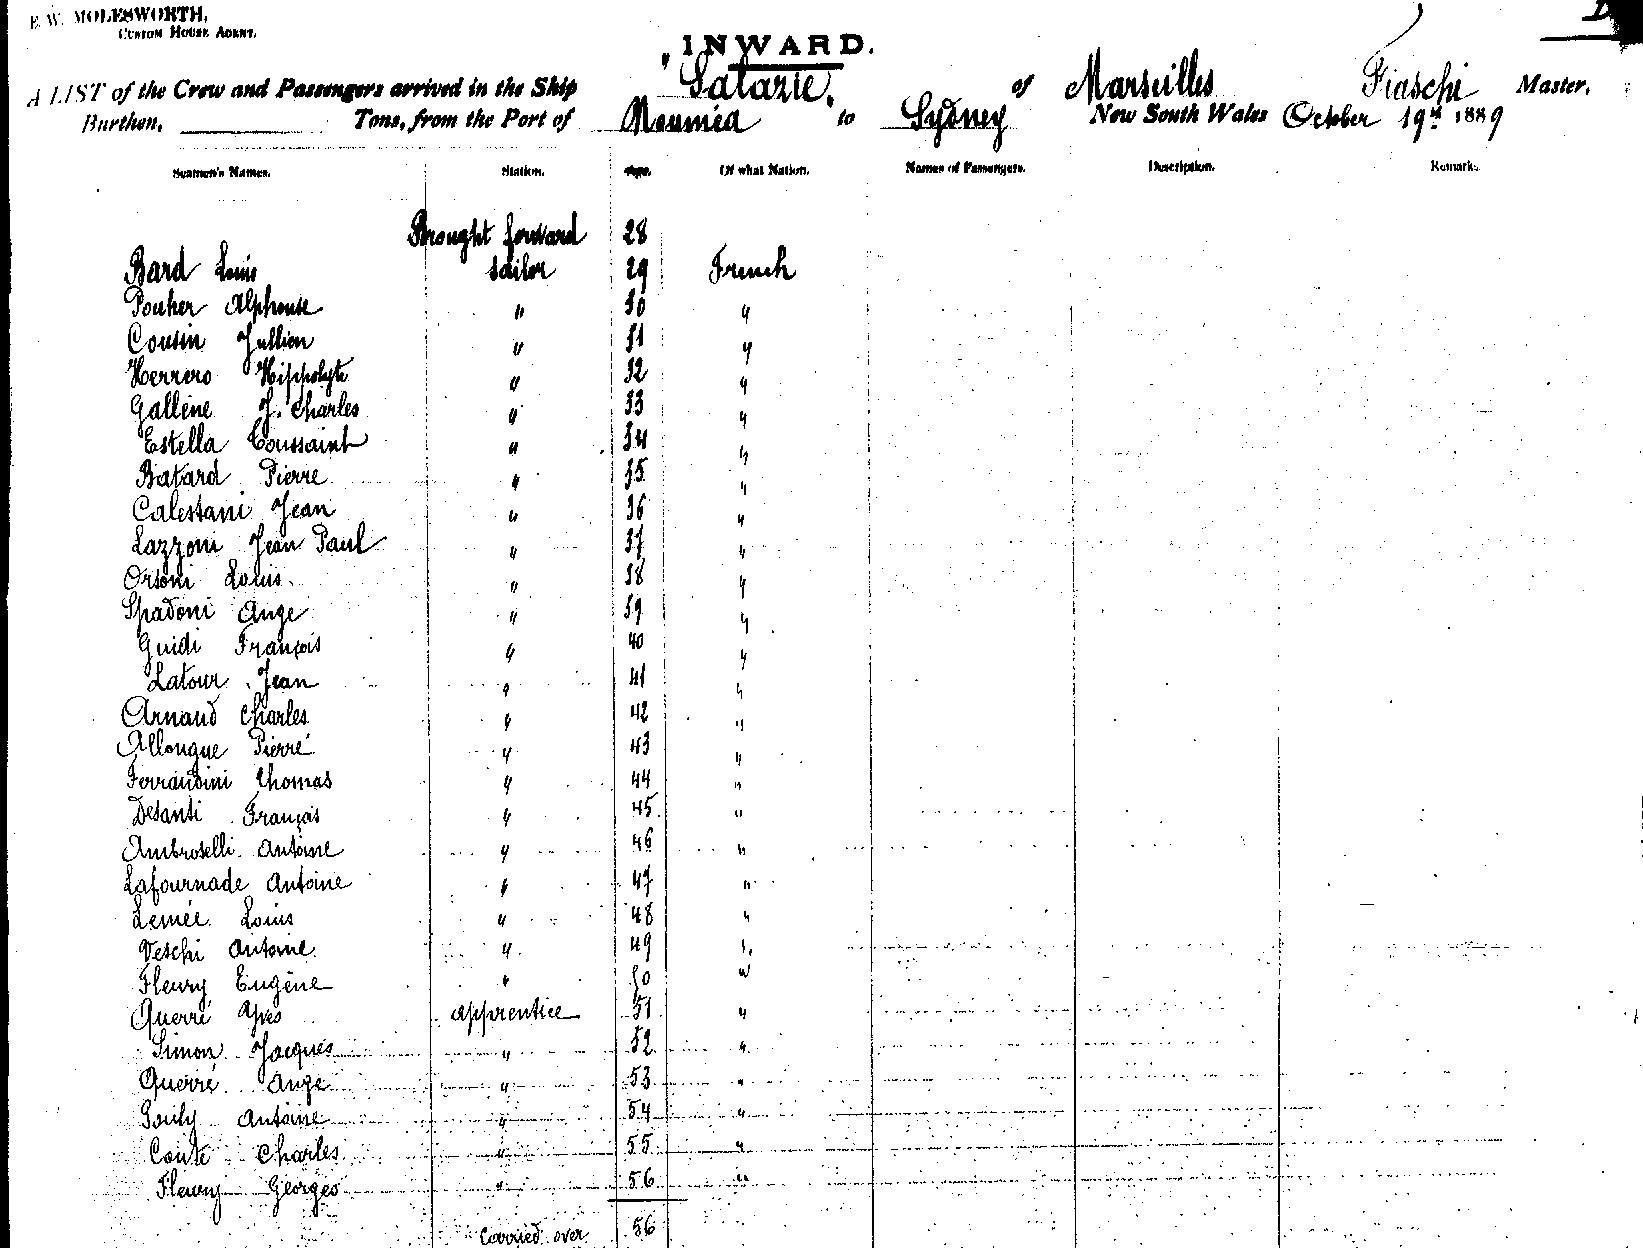 E. W. MOLESWORTH,
CUSTOM HOUSE AGENT.
INWARD.
A LIST of the Crew and Passengers arrived in the Ship "Salazie, of Marseilles Fiaschi Master,
Burthen, Tons, from the Port of Nouméa to Sydney New South Wales October 19th 1889
Seamen's Names. Station. Age. Of what Nation. Names of Passengers. Description. Remarks.
Brought forward 28
Bard Louis sailor 29 French
Alphonse " 30 "
Cousin Jullien " 31 "
Herrero Hippolyte " 32 "
Galléne J. Charles " 33 "
Estella Toussaint " 34 "
Batard Pierre " 35 "
Calestani Jean " 36 "
Lazzoni Jean Paul " 37 "
Orsoni Louis " 38 "
Spadoni Ange " 39 "
Guidi François " 40 "
Latour Jean " 41 "
Arnaud Charles " 42 "
Allongue Pierre " 43 "
Ferrandini Thomas " 44 "
Desanti Français " 45 "
Ambroselli Antoine " 46 "
Lafournade Antoine " 47 "
Lemée Louis " 48 "
Veschi Antoine " 49 "
Fleury Eugène " 50 "
Querré apprentice 51 "
Simon Jacques " 52 "
Querré Ange " 53 "
Antoine " 54 "
Conte Charles " 55 "
Fleury Georges " 56 "
Carried over 56